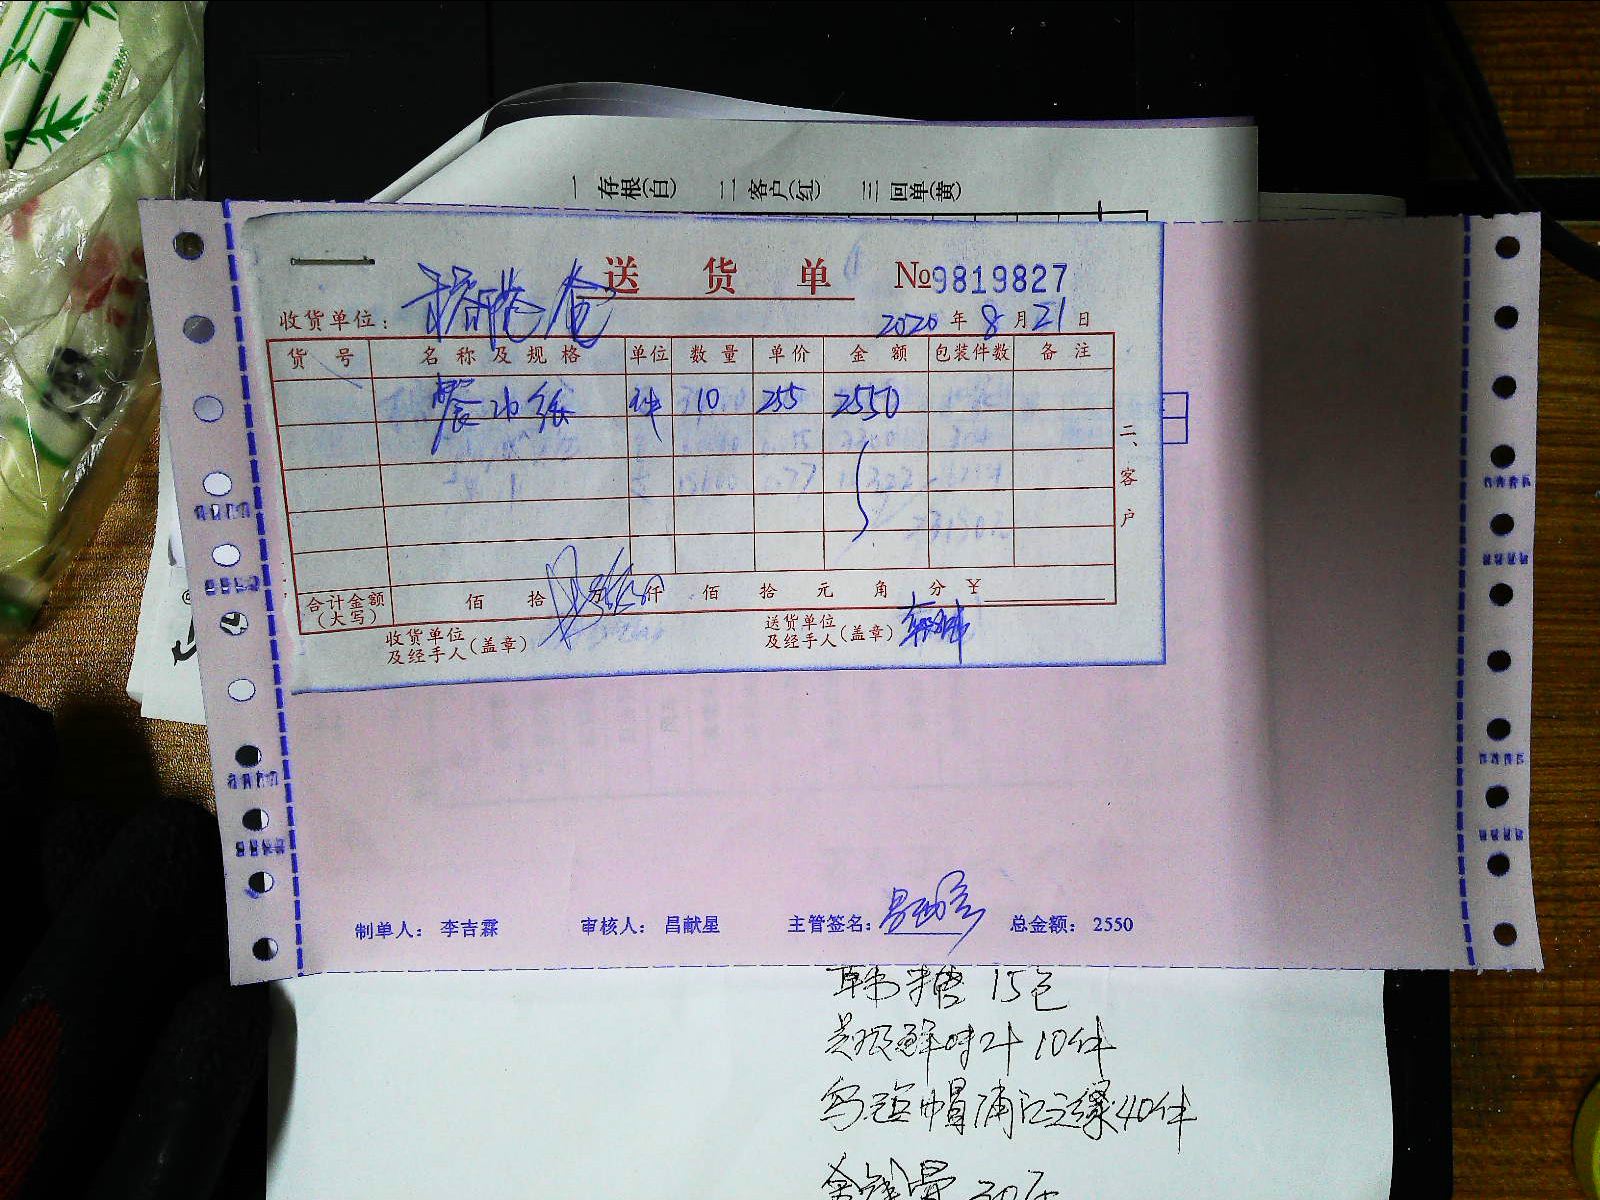 一 存根(白) 二 客户(红) 三 回单(黄)
送 货 单 №9819827
收货单位：
2020 年 8 月 21 日
货 号 名 称 及 规 格 单位 数 量 单 价 金 额 包装件数 备 注
餐巾纸 件 10 255 2550
二、客户
合计金额(大写) 佰 拾 万 仟 佰 拾 元 角 分 ￥
收货单位及经手人(盖章)
送货单位及经手人(盖章)
制单人： 李吉霖 审核人： 昌献星 主管签名： 总金额： 2550
韩糖 15包
美极鲜味汁 10件
乌毡帽浦江之缘 40件